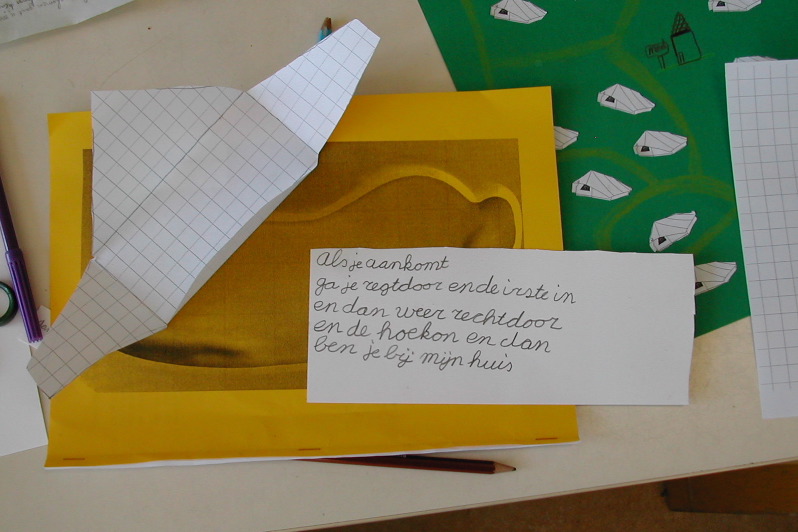 Als je aankomt
ga je regtdoor en de irste in
en dan weer rechtdoor
en de hoekon en dan
ben je bij mijn huis